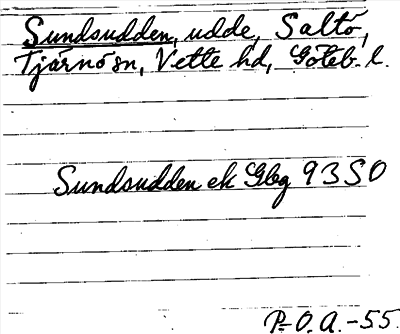 Sundsudden, udde, Saltö,
Tjärnö sn, Vette hd, Göteb. l.
Sundsudden ek Gbg 93 SO
P.-O. A. -55.